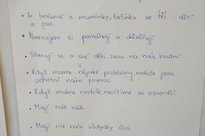 • Je hožená s maminky, tatínka ze tří dětí
a psa.
• Navzájem si pomáhají a důvěřují.
• Starají se o své děti. Jsou na nás hodní.
• Když máme nějaké problémy, rodiče jsou
ochotní nám pomoc
• Když máme rodiče, necítíme se osamělí.
• Mají nás rádi.
• Mají na nás vždycky čas.